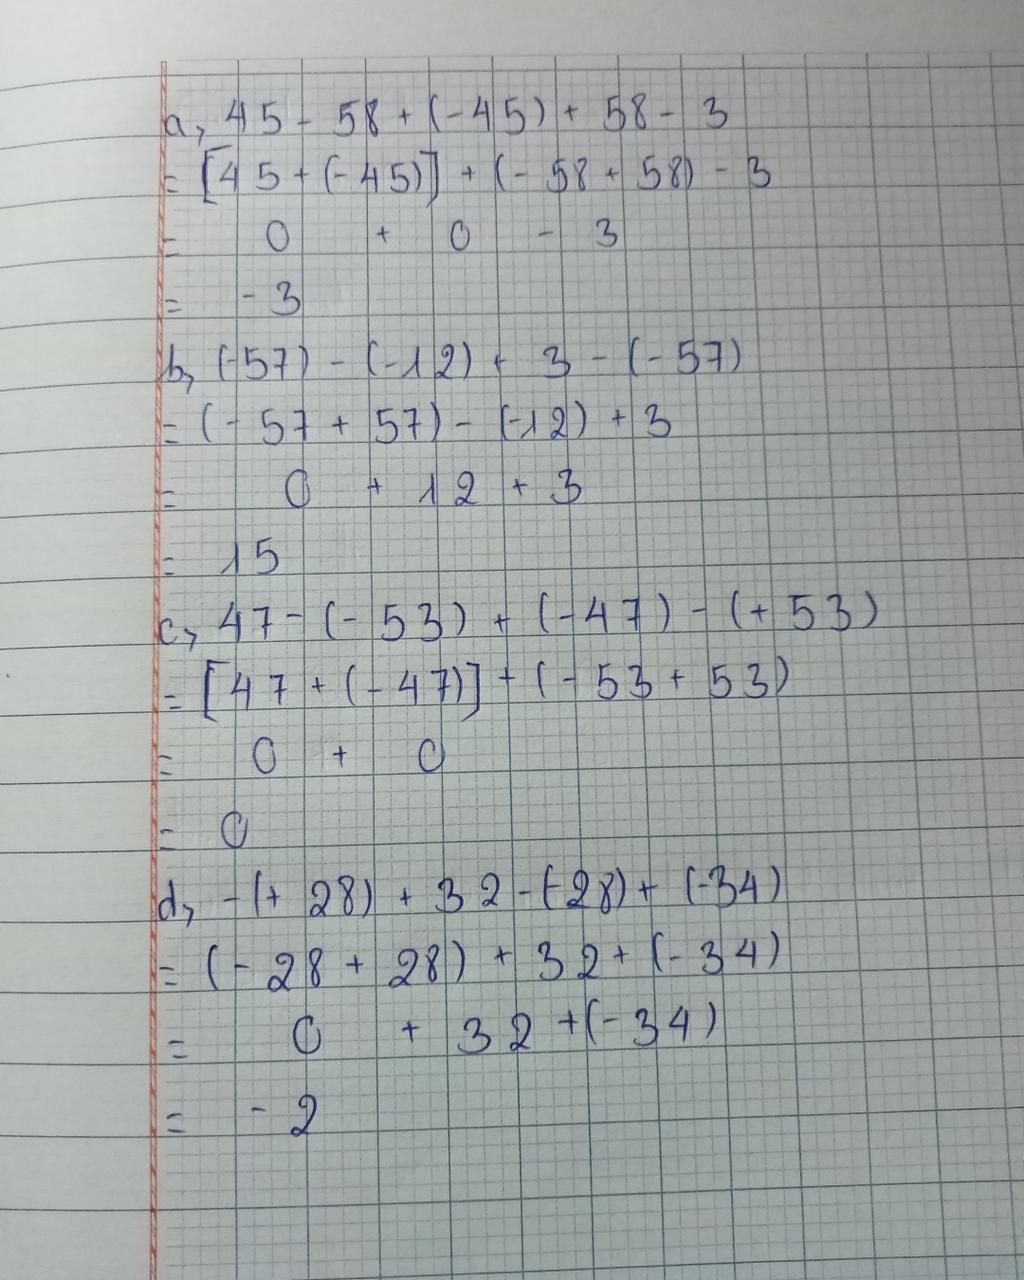 a, 45 - 58 + (-45) + 58 - 3
= [45 + (-45)] + (- 58 + 58) - 3
= 0 + 0 - 3
= - 3
b, (-57) - (-12) + 3 - (-57)
= (- 57 + 57) - (-12) + 3
= 0 + 12 + 3
= 15
c, 47 - (- 53) + (-47) - (+ 53)
= [47 + (- 47)] + (- 53 + 53)
= 0 + 0
= 0
d, - (+ 28) + 32 - (-28) + (-34)
= (- 28 + 28) + 32 + (- 34)
= 0 + 32 + (- 34)
= - 2